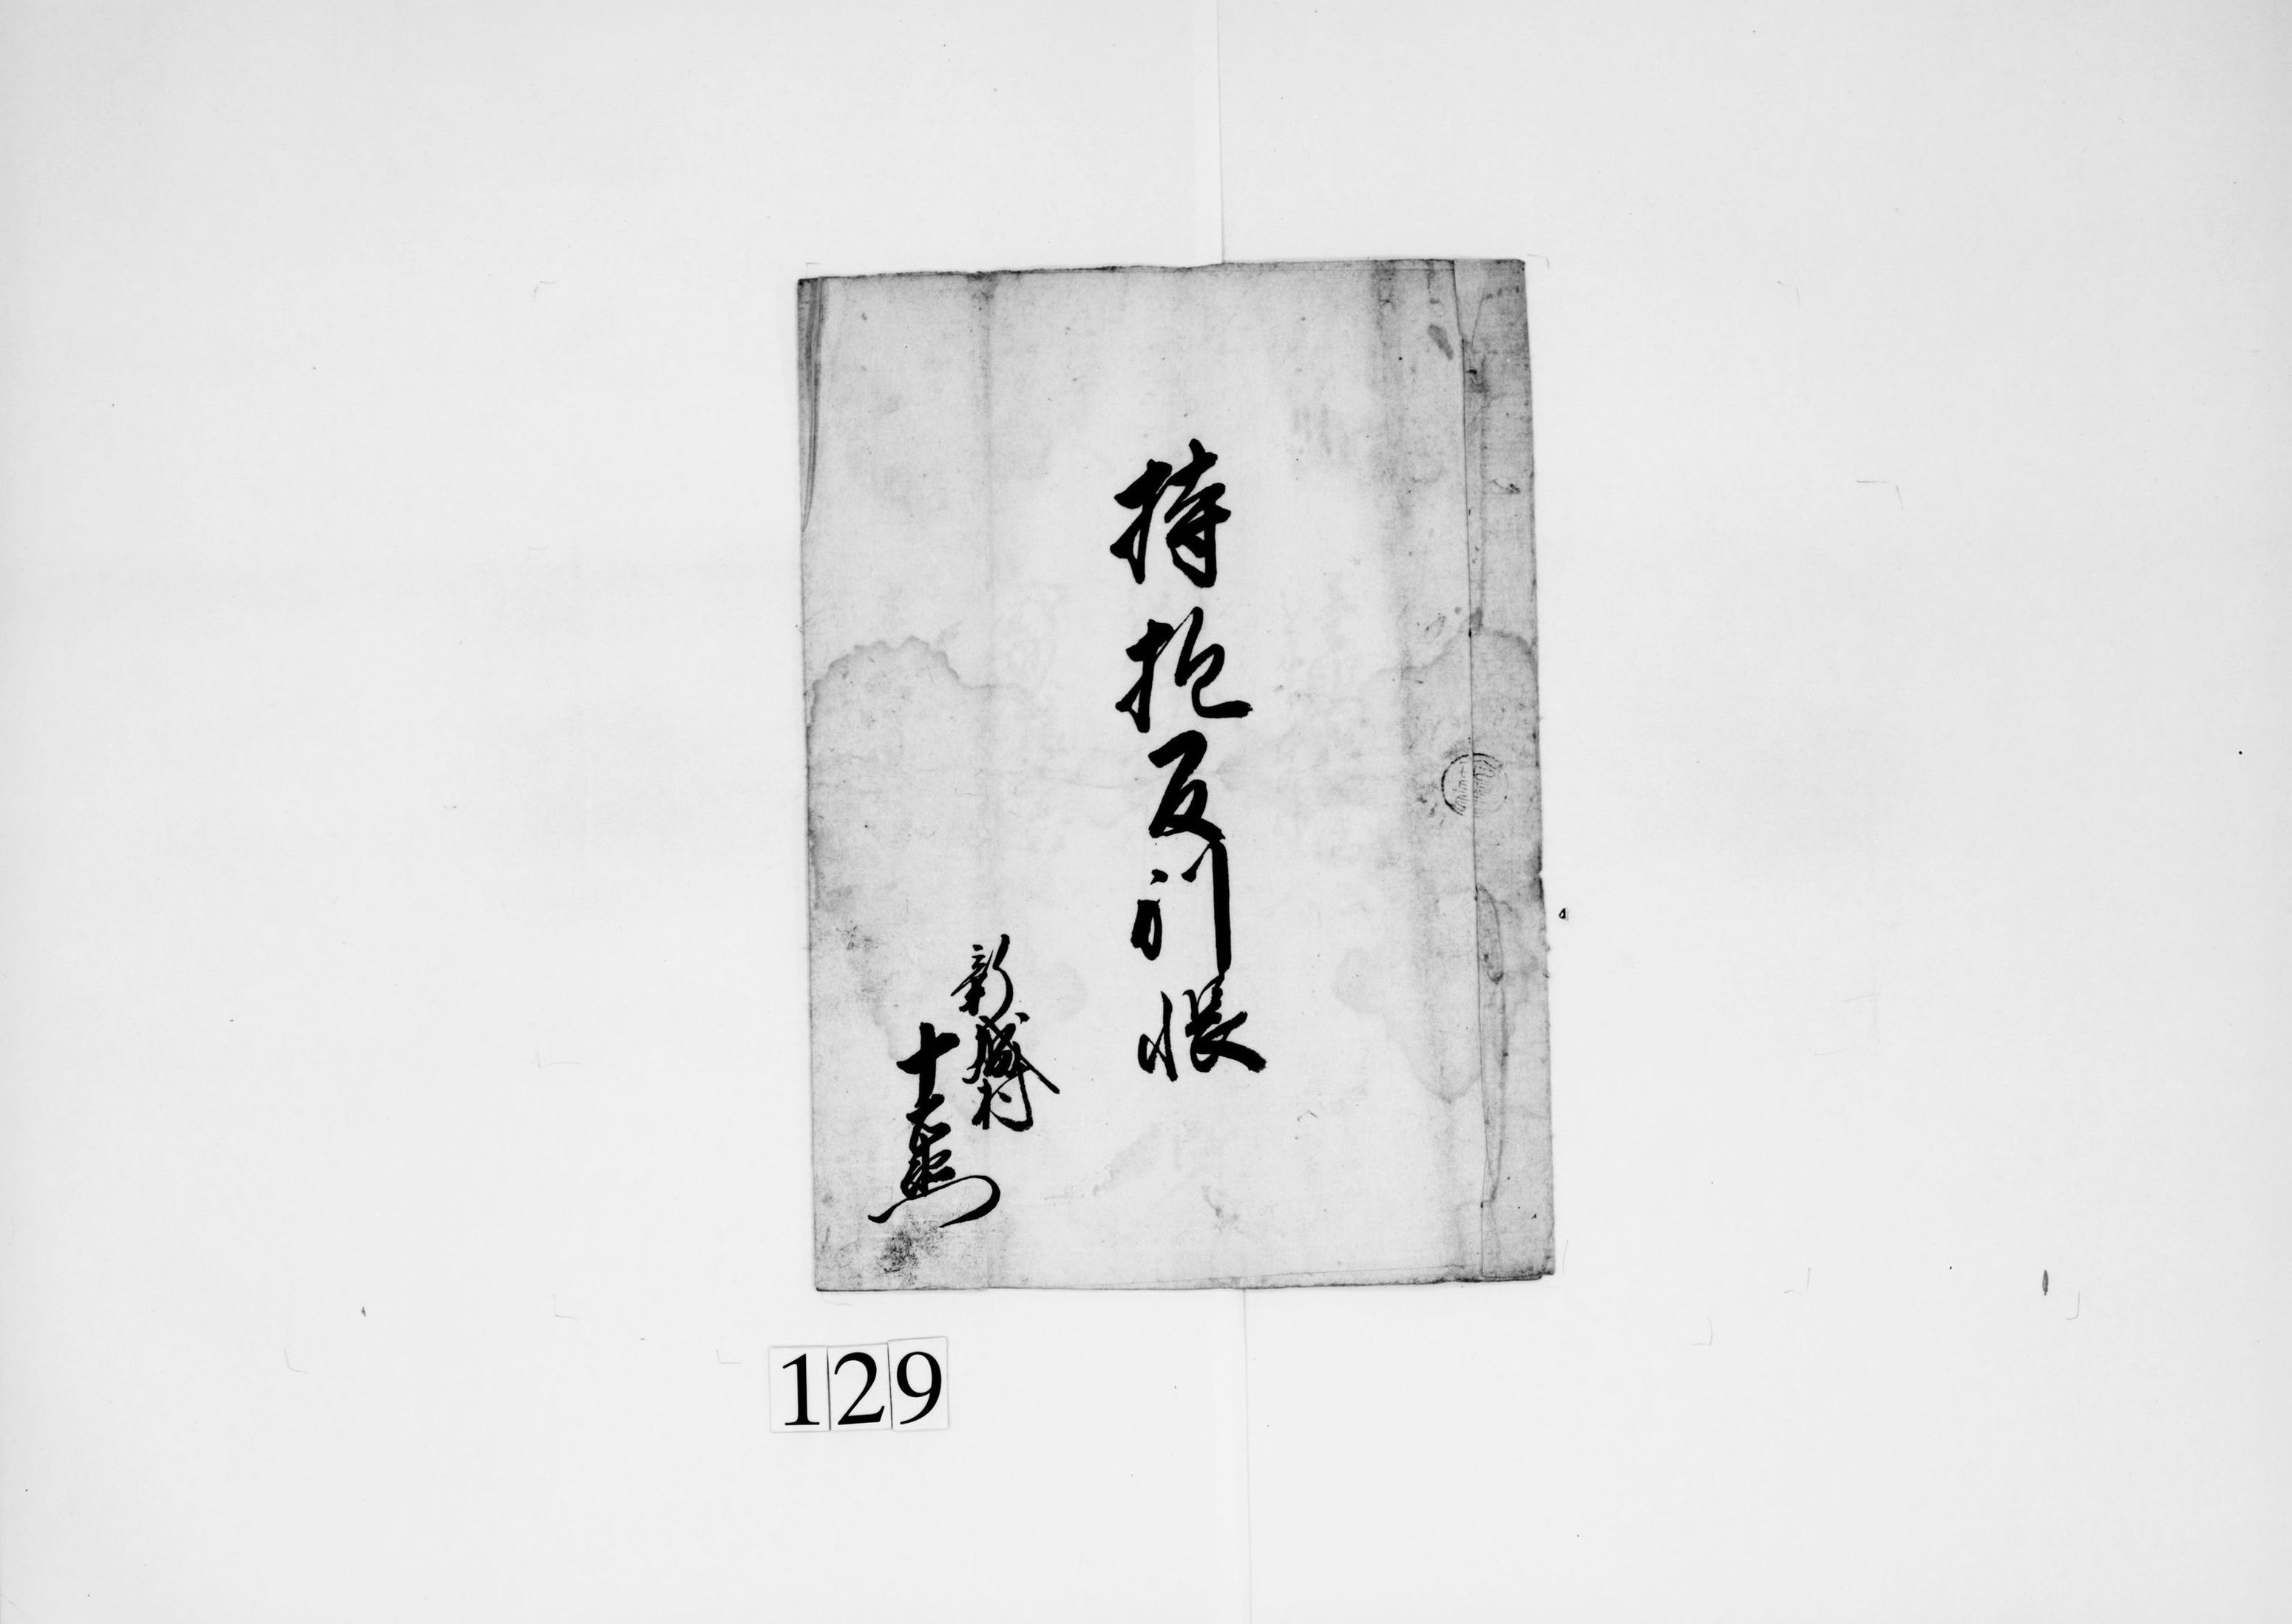 持抱反別帳
新城村
十兵衛
129